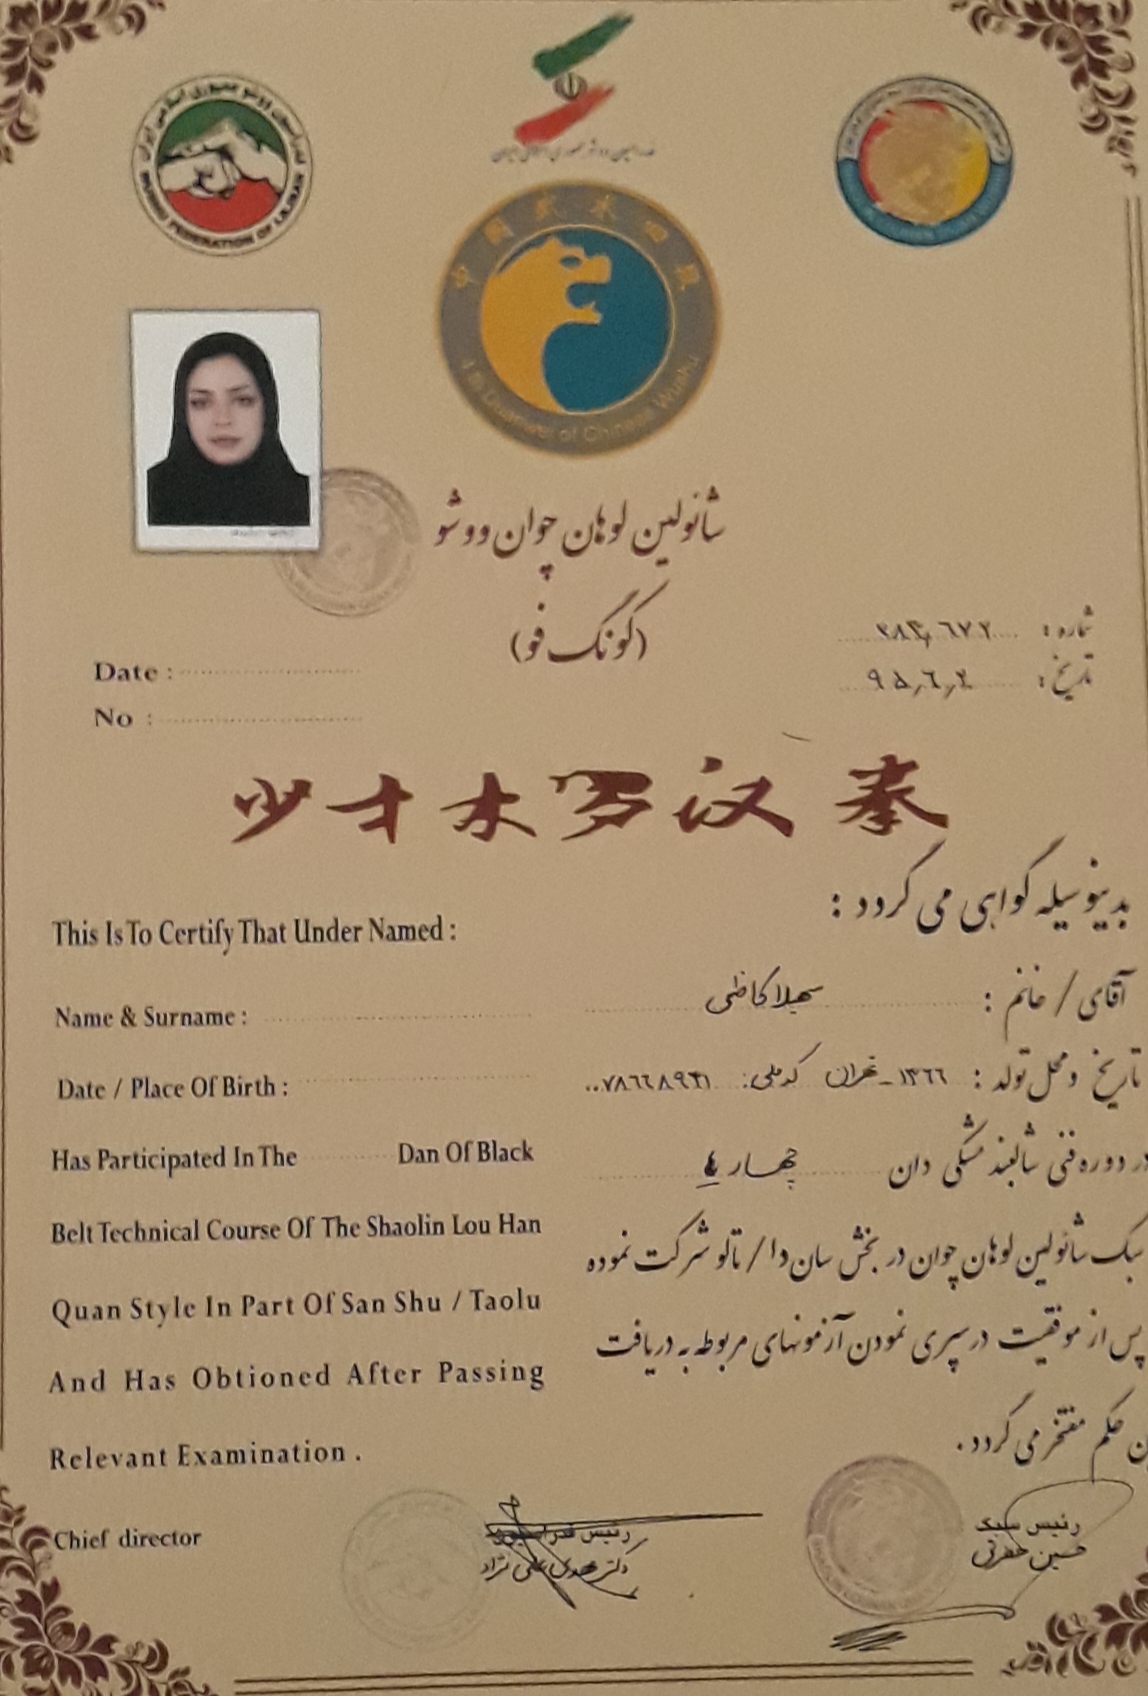 فدراسیون ووشو جمهوری اسلامی ایران
WUSHU FEDERATION OF I.R.IRAN
中國武术四段
4 th Duanwei of Chinese Wushu
شائولین لوهان چوان ووشو
(کونگ فو)
شماره :
تاریخ : ۹۵٫۶٫۲
Date :
No :
少才木罗汉拳
بدینوسیله گواهی می گردد :
This Is To Certify That Under Named :
آقای / خانم : سهیلا کاظمی
Name & Surname :
تاریخ و محل تولد : ۱۳۶۶ - تهران کدملی:
Date / Place Of Birth :
در دوره فنی شالبند مشکی دان چهار
Has Participated In The Dan Of Black
سبک شائولین لوهان چوان در بخش سان دا / تالو شرکت نموده
Belt Technical Course Of The Shaolin Lou Han
پس از موفقیت در سپری نمودن آزمونهای مربوطه به دریافت
Quan Style In Part Of San Shu / Taolu
حکم مفتخر می گردد .
And Has Obtioned After Passing
Relevant Examination .
Chief director
رئیس فدراسیون
دکتر مهدی علی نژاد
رئیس سبک
حسین